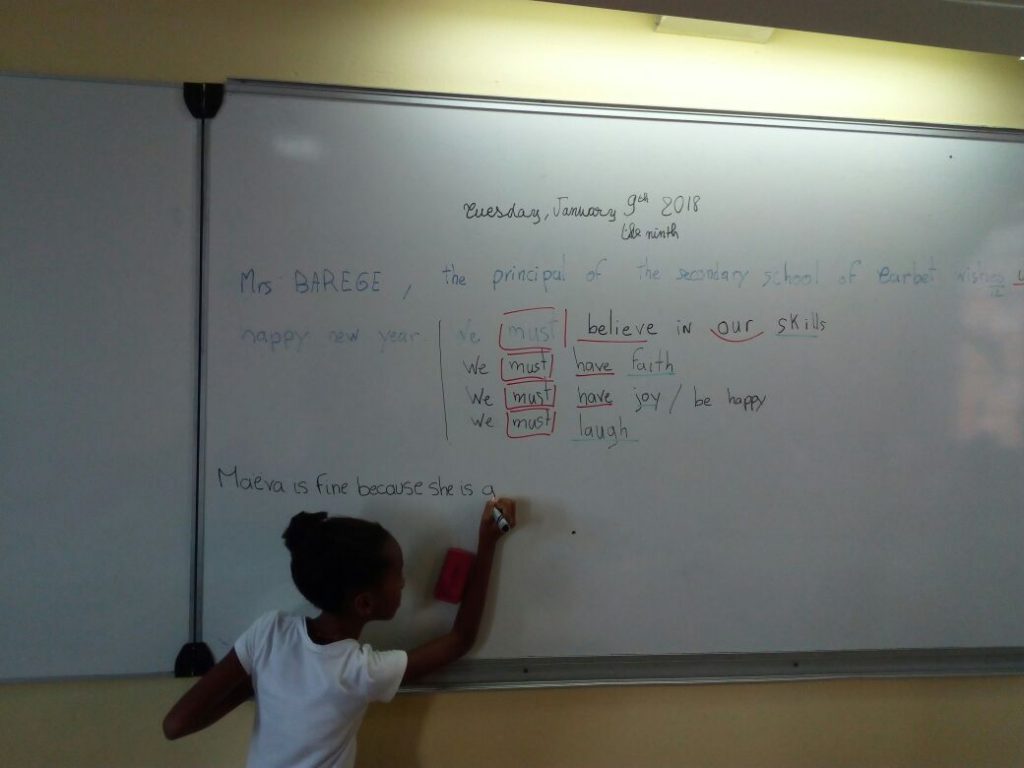 Tuesday, January 9th 2018
the ninth
Mrs BAREGE, the principal of the secondary school of Barbet wishes
happy new year We must believe in our skills
We must have faith
We must have joy / be happy
We must laugh
Maëva is fine because she is a